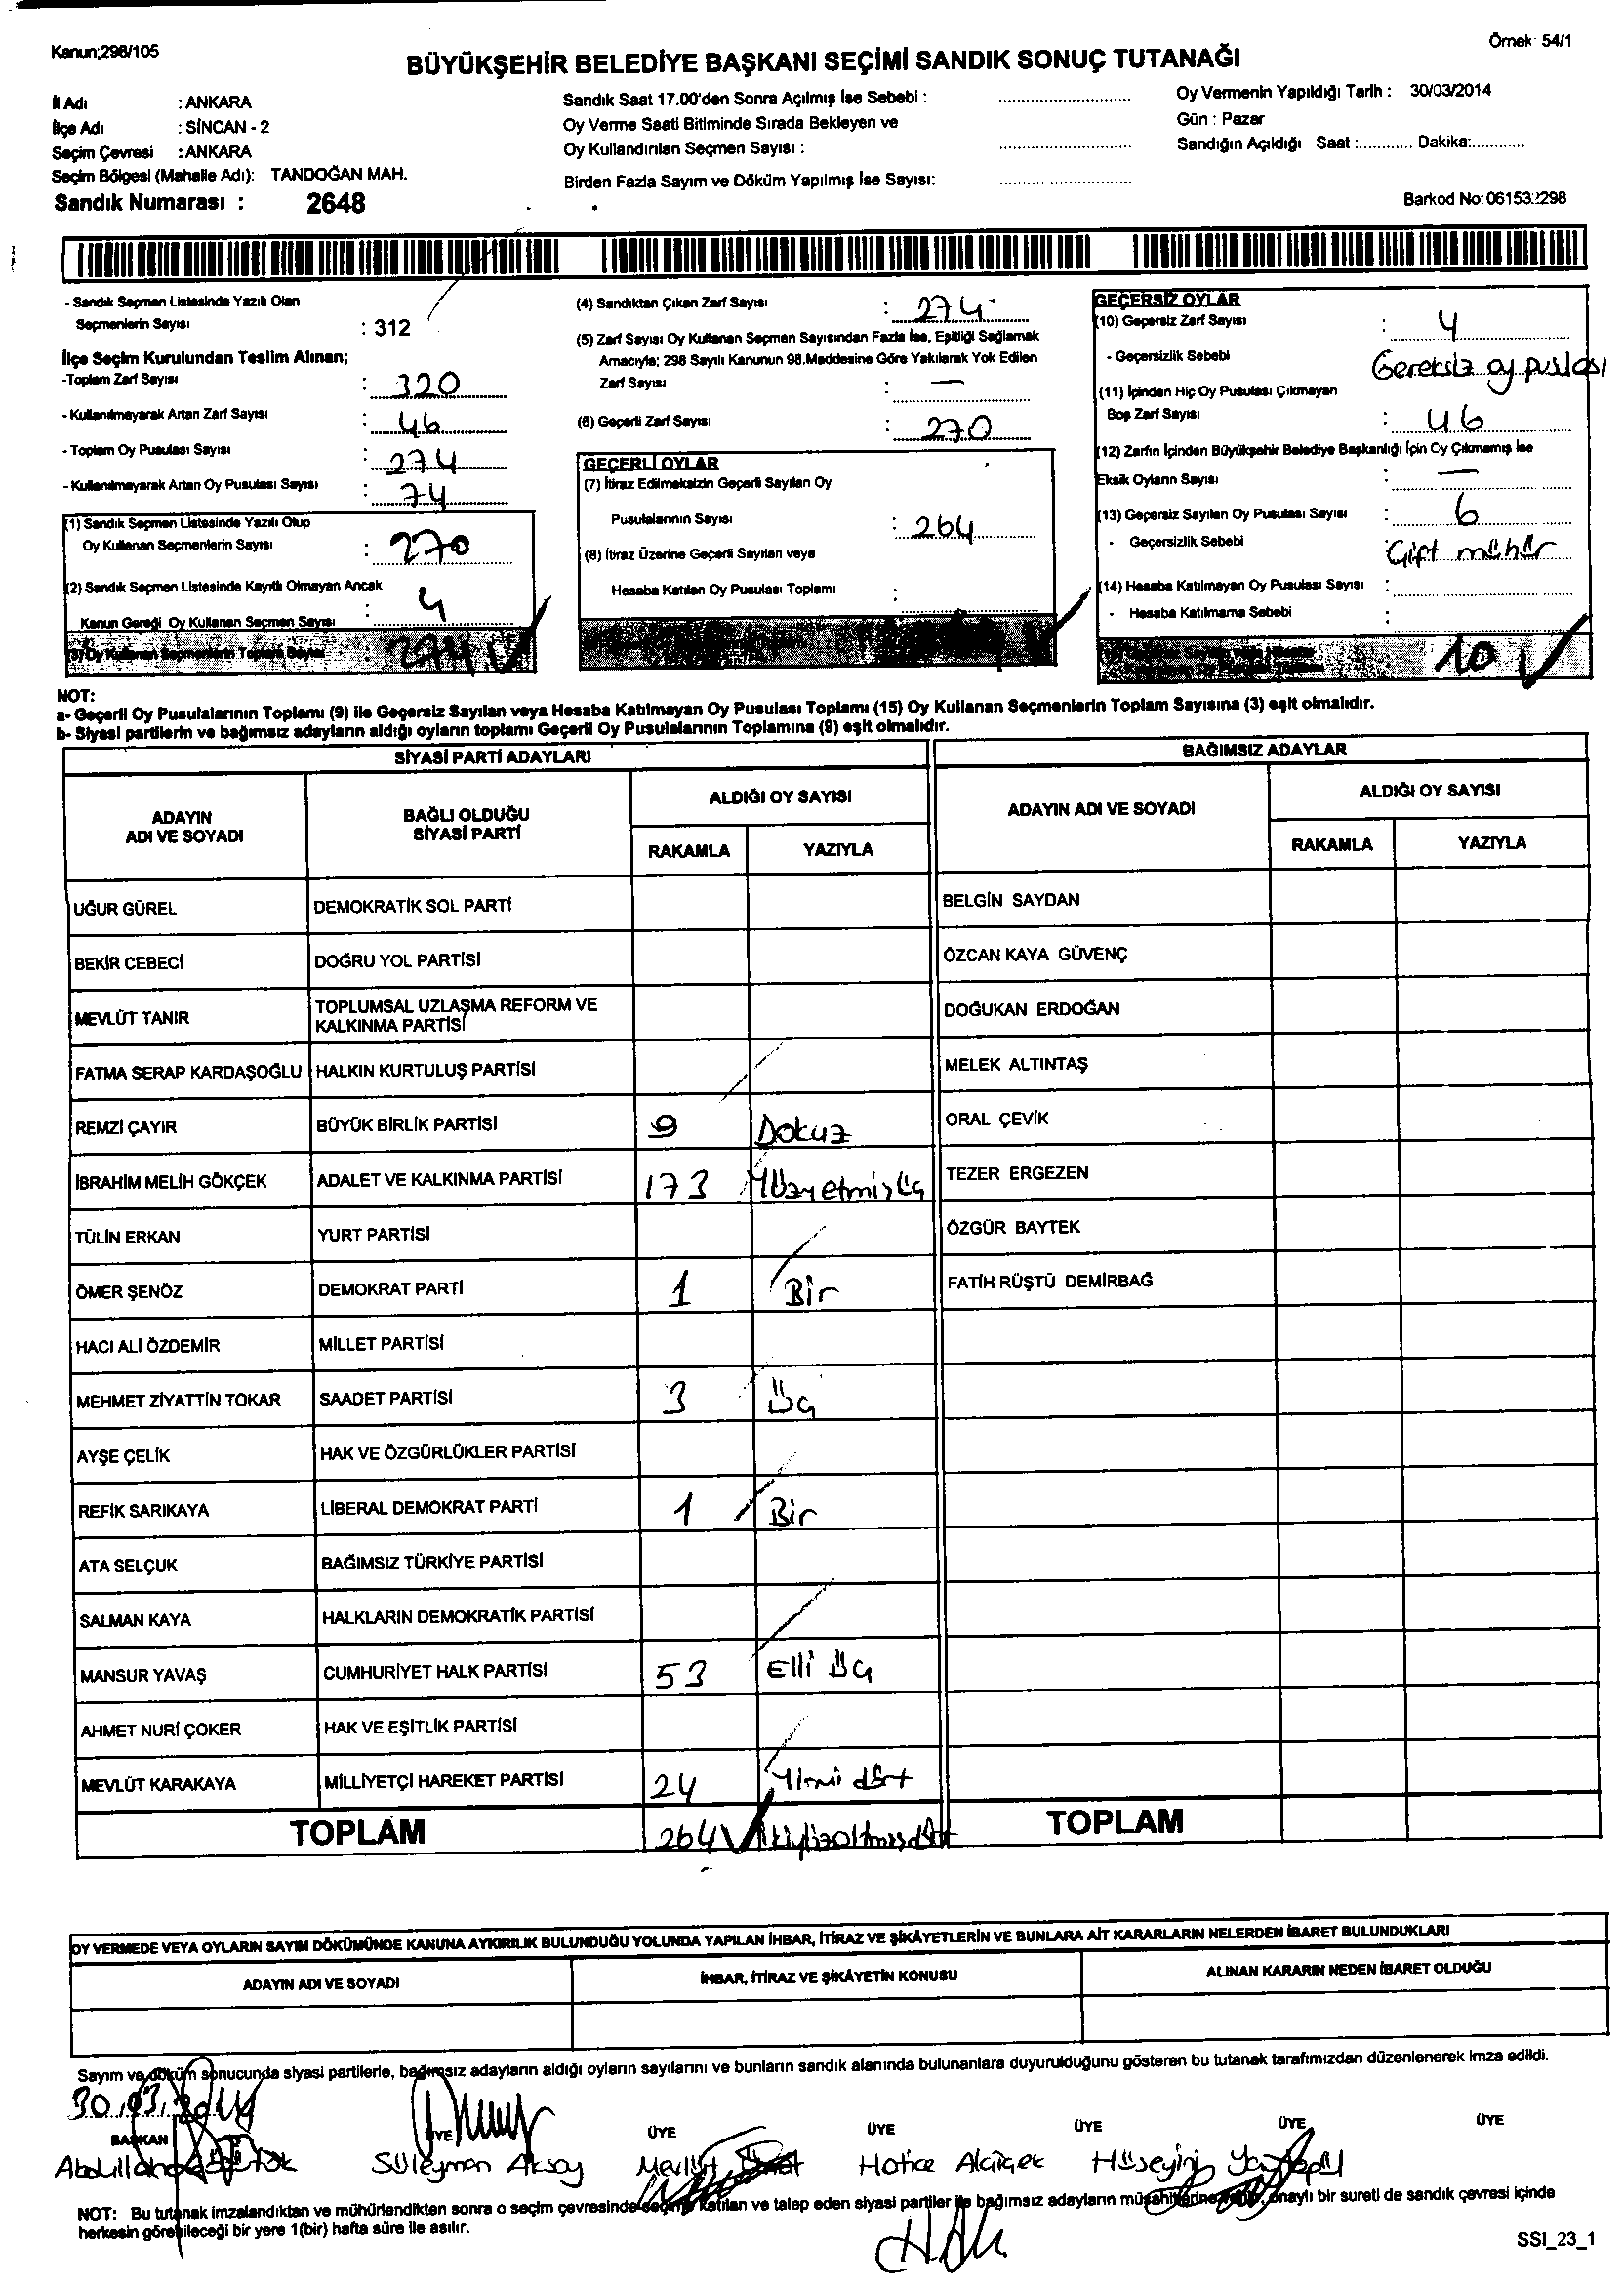 Kanun;298/105
Örnek 54/1
BÜYÜKŞEHİR BELEDİYE BAŞKANI SEÇİMİ SANDIK SONUÇ TUTANAĞI
İl Adı : ANKARA
İlçe Adı : SİNCAN - 2
Seçim Çevresi : ANKARA
Seçim Bölgesi (Mahalle Adı): TANDOĞAN MAH.
Sandık Numarası : 2648
Sandık Saat 17.00'den Sonra Açılmış İse Sebebi :
Oy Verme Saati Bitiminde Sırada Bekleyen ve
Oy Kullandırılan Seçmen Sayısı :
Birden Fazla Sayım ve Döküm Yapılmış İse Sayısı:
Oy Vermenin Yapıldığı Tarih : 30/03/2014
Gün : Pazar
Sandığın Açıldığı Saat :............ Dakika:............
Barkod No:
- Sandık Seçmen Listesinde Yazılı Olan
Seçmenlerin Sayısı : 312
İlçe Seçim Kurulundan Teslim Alınan;
-Toplam Zarf Sayısı : 320
- Kullanılmayarak Artan Zarf Sayısı : 46
- Toplam Oy Pusulası Sayısı : 274
- Kullanılmayarak Artan Oy Pusulası Sayısı : 74
(1) Sandık Seçmen Listesinde Yazılı Olup
Oy Kullanan Seçmenlerin Sayısı : 270
(2) Sandık Seçmen Listesinde Kayıtlı Olmayan Ancak
Kanun Gereği Oy Kullanan Seçmen Sayısı : 4
(3) Oy Kullanan Seçmenlerin Toplam Sayısı : 274
(4) Sandıktan Çıkan Zarf Sayısı : 274
(5) Zarf Sayısı Oy Kullanan Seçmen Sayısından Fazla İse, Eşitliği Sağlamak
Amacıyla; 298 Sayılı Kanunun 98.Maddesine Göre Yakılarak Yok Edilen
Zarf Sayısı : —
(6) Geçerli Zarf Sayısı : 270
GEÇERLİ OYLAR
(7) İtiraz Edilmeksizin Geçerli Sayılan Oy
Pusulalarının Sayısı : 264
(8) İtiraz Üzerine Geçerli Sayılan veya
Hesaba Katılan Oy Pusulası Toplamı :
GEÇERSİZ OYLAR
(10) Geçersiz Zarf Sayısı : 4
- Geçersizlik Sebebi : Gereksiz oy puslası
(11) İçinden Hiç Oy Pusulası Çıkmayan
Boş Zarf Sayısı : 46
(12) Zarfın İçinden Büyükşehir Belediye Başkanlığı İçin Oy Çıkmamış İse
Eksik Oyların Sayısı : —
(13) Geçersiz Sayılan Oy Pusulası Sayısı : 6
- Geçersizlik Sebebi : Çift mühür
(14) Hesaba Katılmayan Oy Pusulası Sayısı :
- Hesaba Katılmama Sebebi :
10
NOT:
a- Geçerli Oy Pusulalarının Toplamı (9) ile Geçersiz Sayılan veya Hesaba Katılmayan Oy Pusulası Toplamı (15) Oy Kullanan Seçmenlerin Toplam Sayısına (3) eşit olmalıdır.
b- Siyasi partilerin ve bağımsız adayların aldığı oyların toplamı Geçerli Oy Pusulalarının Toplamına (9) eşit olmalıdır.
SİYASİ PARTİ ADAYLARI
ADAYIN ADI VE SOYADI
BAĞLI OLDUĞU SİYASİ PARTİ
ALDIĞI OY SAYISI
RAKAMLA YAZIYLA
UĞUR GÜREL DEMOKRATİK SOL PARTİ
BEKİR CEBECİ DOĞRU YOL PARTİSİ
MEVLÜT TANIR TOPLUMSAL UZLAŞMA REFORM VE
KALKINMA PARTİSİ
FATMA SERAP KARDAŞOĞLU HALKIN KURTULUŞ PARTİSİ
REMZİ ÇAYIR BÜYÜK BİRLİK PARTİSİ 9 Dokuz
İBRAHİM MELİH GÖKÇEK ADALET VE KALKINMA PARTİSİ 173 Yüzyetmişüç
TÜLİN ERKAN YURT PARTİSİ
ÖMER ŞENÖZ DEMOKRAT PARTİ 1 Bir
HACI ALİ ÖZDEMİR MİLLET PARTİSİ
MEHMET ZİYATTİN TOKAR SAADET PARTİSİ 3 Üç
AYŞE ÇELİK HAK VE ÖZGÜRLÜKLER PARTİSİ
REFİK SARIKAYA LİBERAL DEMOKRAT PARTİ 1 Bir
ATA SELÇUK BAĞIMSIZ TÜRKİYE PARTİSİ
SALMAN KAYA HALKLARIN DEMOKRATİK PARTİSİ
MANSUR YAVAŞ CUMHURİYET HALK PARTİSİ 53 Elli üç
AHMET NURİ ÇOKER HAK VE EŞİTLİK PARTİSİ
MEVLÜT KARAKAYA MİLLİYETÇİ HAREKET PARTİSİ 24 Yirmi dört
TOPLAM 264 ikiyüzaltmışdört
BAĞIMSIZ ADAYLAR
ADAYIN ADI VE SOYADI
ALDIĞI OY SAYISI
RAKAMLA YAZIYLA
BELGİN SAYDAN
ÖZCAN KAYA GÜVENÇ
DOĞUKAN ERDOĞAN
MELEK ALTINTAŞ
ORAL ÇEVİK
TEZER ERGEZEN
ÖZGÜR BAYTEK
FATİH RÜŞTÜ DEMİRBAĞ
TOPLAM
OY VERMEDE VEYA OYLARIN SAYIM DÖKÜMÜNDE KANUNA AYKIRILIK BULUNDUĞU YOLUNDA YAPILAN İHBAR, İTİRAZ VE ŞİKÂYETLERİN VE BUNLARA AİT KARARLARIN NELERDEN İBARET BULUNDUKLARI
ADAYIN ADI VE SOYADI
İHBAR, İTİRAZ VE ŞİKÂYETİN KONUSU
ALINAN KARARIN NEDEN İBARET OLDUĞU
Sayım ve döküm sonucunda siyasi partilerle, bağımsız adayların aldığı oyların sayılarını ve bunların sandık alanında bulunanlara duyurulduğunu gösteren bu tutanak tarafımızdan düzenlenerek imza edildi.
30.03.2014
BAŞKAN ÜYE ÜYE ÜYE ÜYE ÜYE ÜYE
Süleyman Aksoy Mevlüt Hatice Alçiçek Hüseyin
NOT: Bu tutanak imzalandıktan ve mühürlendikten sonra o seçim çevresinde seçime katılan ve talep eden siyasi partiler ile bağımsız adayların müşahitlerine onaylı bir sureti de sandık çevresi içinde
herkesin görebileceği bir yere 1(bir) hafta süre ile asılır.
SSI_23_1